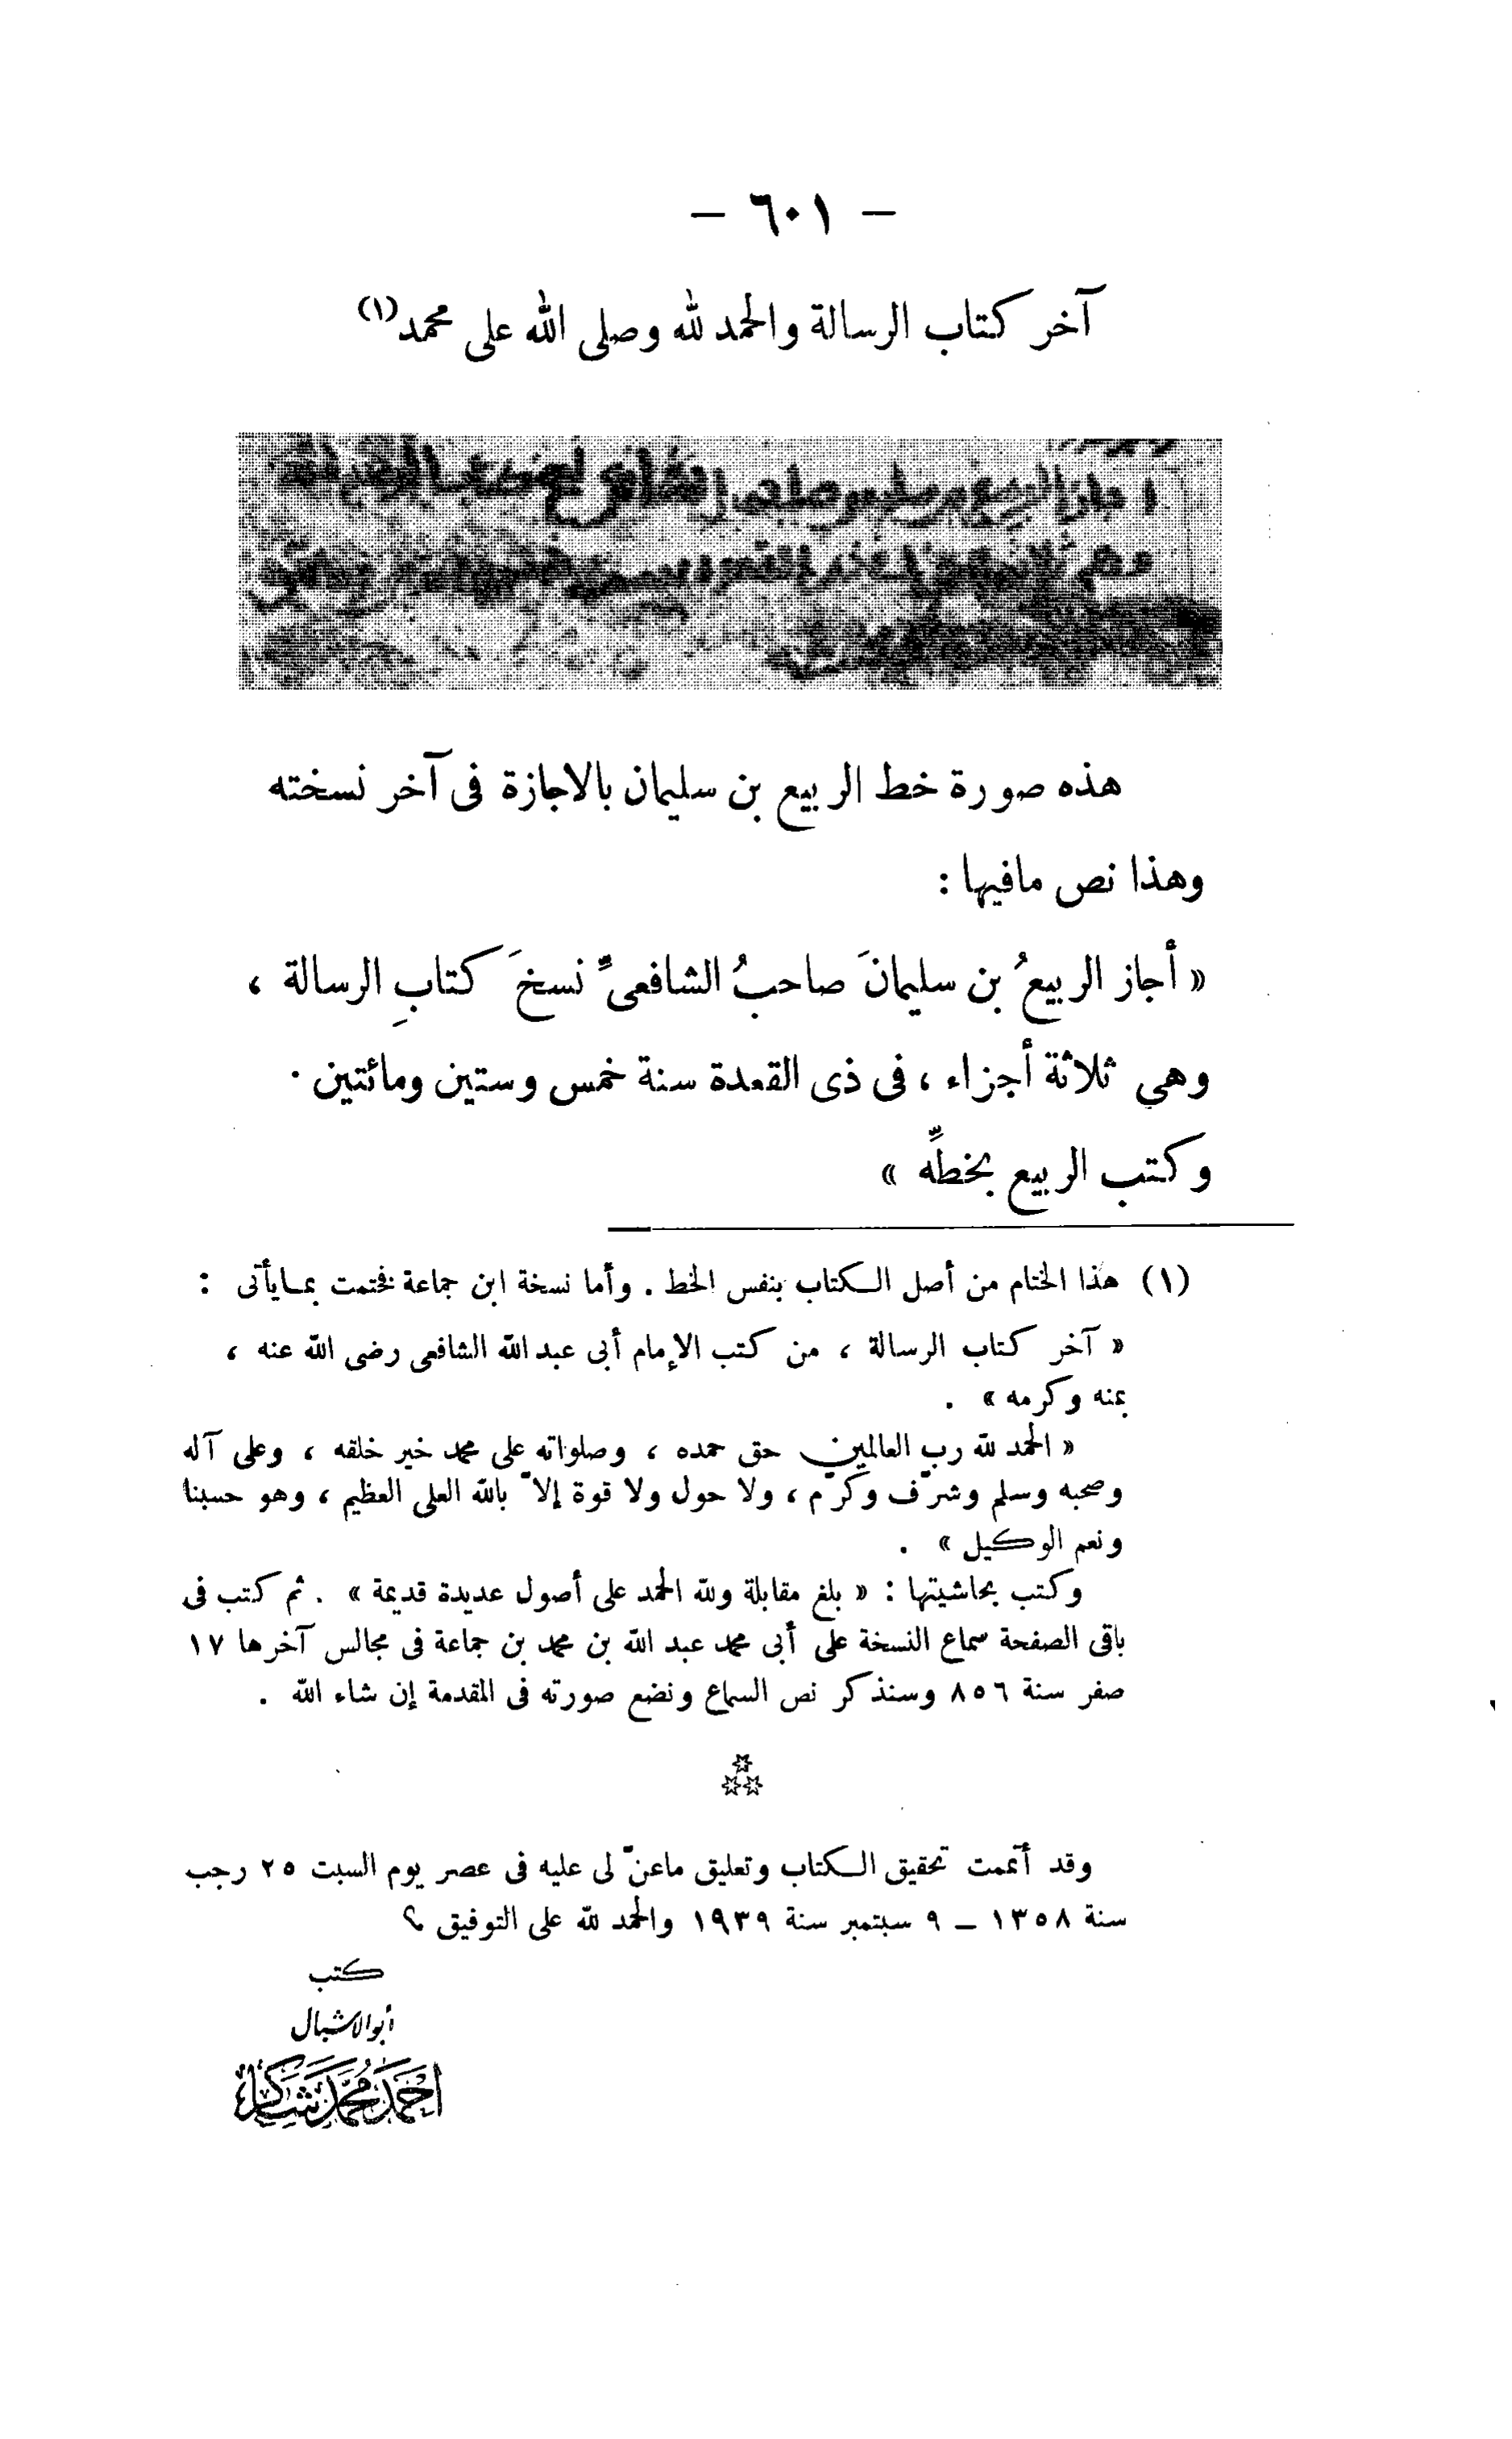 — ٦٠١ —
آخر كتاب الرسالة والحمد لله وصلى الله على محمد(١)
هذه صورة خط الربيع بن سليمان بالاجازة فى آخر نسخته
وهذا نص مافيها :
« أجاز الربيعُ بن سليمانَ صاحبُ الشافعىِّ نسخَ كتابِ الرسالة ،
وهي ثلاثة أجزاء ، فى ذى القعدة سنة خمس وستين ومائتين .
وكتب الربيع بخطِّه »
(١) هذا الختام من أصل الكتاب بنفس الخط . وأما نسخة ابن جماعة فختمت بمـايأتى :
« آخر كتاب الرسالة ، من كتب الإمام أبى عبد الله الشافعى رضى الله عنه ،
بمنه وكرمه » .
« الحمد لله رب العالمين حق حمده ، وصلواته على محمد خير خلقه ، وعلى آله
وصحبه وسلم وشرّف وكرّم ، ولا حول ولا قوة إلاّ بالله العلى العظيم ، وهو حسبنا
ونعم الوكيل » .
وكتب بحاشيتها : « بلغ مقابلة ولله الحمد على أصول عديدة قديمة » . ثم كتب فى
باقى الصفحة سماع النسخة على أبى محمد عبد الله بن محمد بن جماعة فى مجالس آخرها ١٧
صفر سنة ٨٥٦ وسنذكر نص السماع ونضع صورته فى المقدمة إن شاء الله .
وقد أتممت تحقيق الكتاب وتعليق ماعنّ لى عليه فى عصر يوم السبت ٢٥ رجب
سنة ١٣٥٨ – ٩ سبتمبر سنة ١٩٣٩ والحمد لله على التوفيق
كتب
أبوالاشبال
أَحْمَد مُحَمَّد شَاكِر